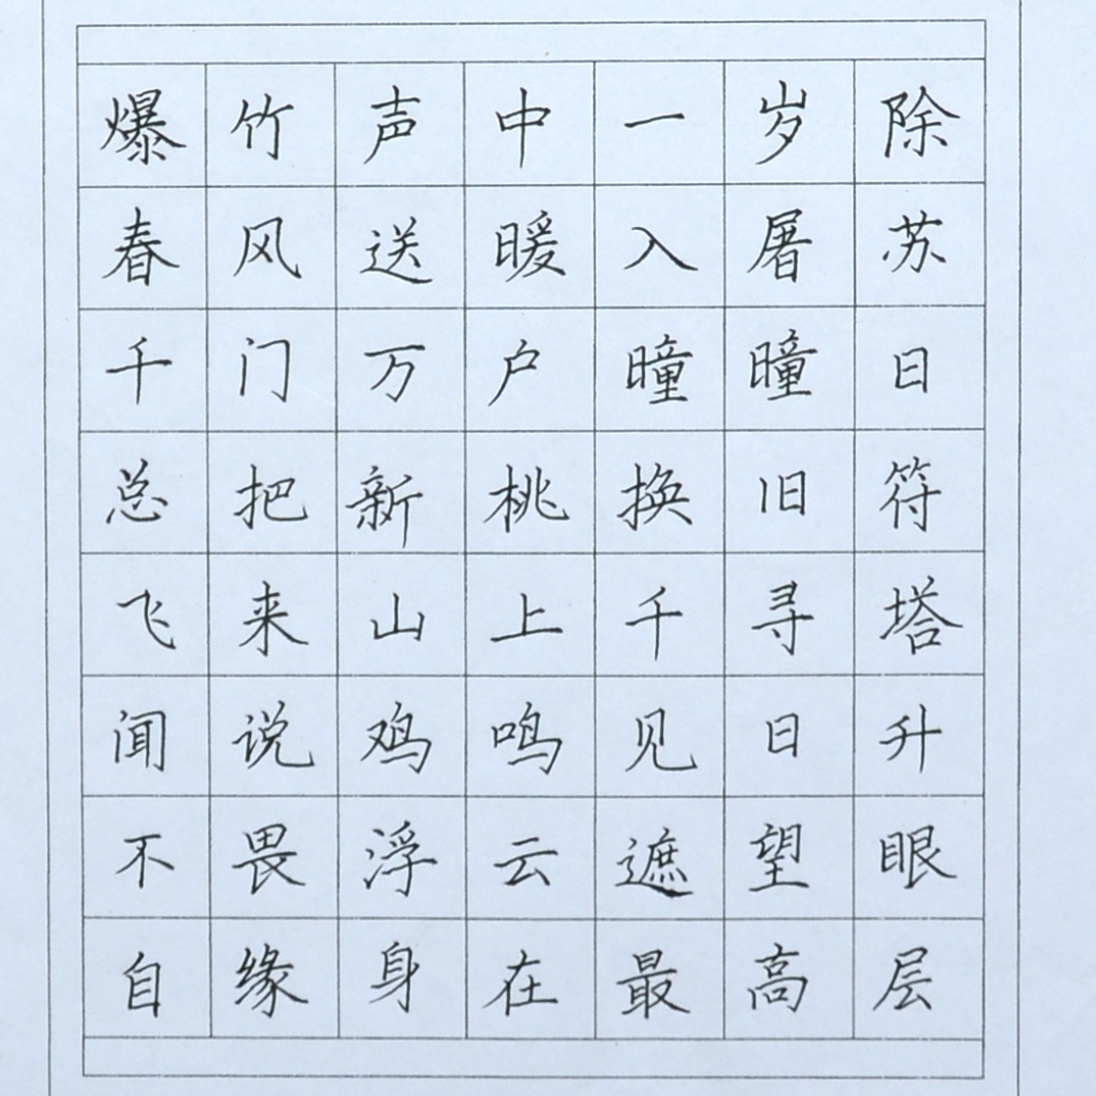 爆竹声中一岁除
春风送暖入屠苏
千门万户曈曈日
总把新桃换旧符
飞来山上千寻塔
闻说鸡鸣见日升
不畏浮云遮望眼
自缘身在最高层